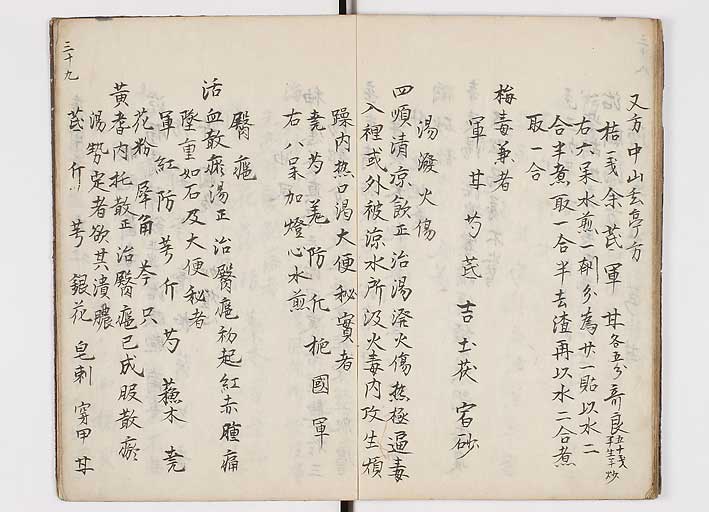 又方中山玄亭方
桔一戔余芪軍甘各五分奇良五十戔
不生干炒
右六味水煎一劑分為廿一貼以水二
合半煮取一合半去渣再以水二合煮
取一合
梅毒兼者
軍甘芍芪吉土茯宿砂
湯潑火傷
四順清凉飲正治湯潑火傷熱極逼毒
入裡或外被涼水所汲火毒内攻生煩
躁内热口渇大便秘實者
尭芍羗防仉梔國軍
右八味加燈心水煎
臀癰
活血散瘀湯正治臀癰初起紅赤腫痛
墜重如石及大便秘者
軍紅防芎斤芍蘓木尭
花粉犀角芩只
黄耆内托散正治臀癰已成服散瘀
湯勢定者欲其潰膿
芪斤芎銀花皂刺穿甲甘
三十九